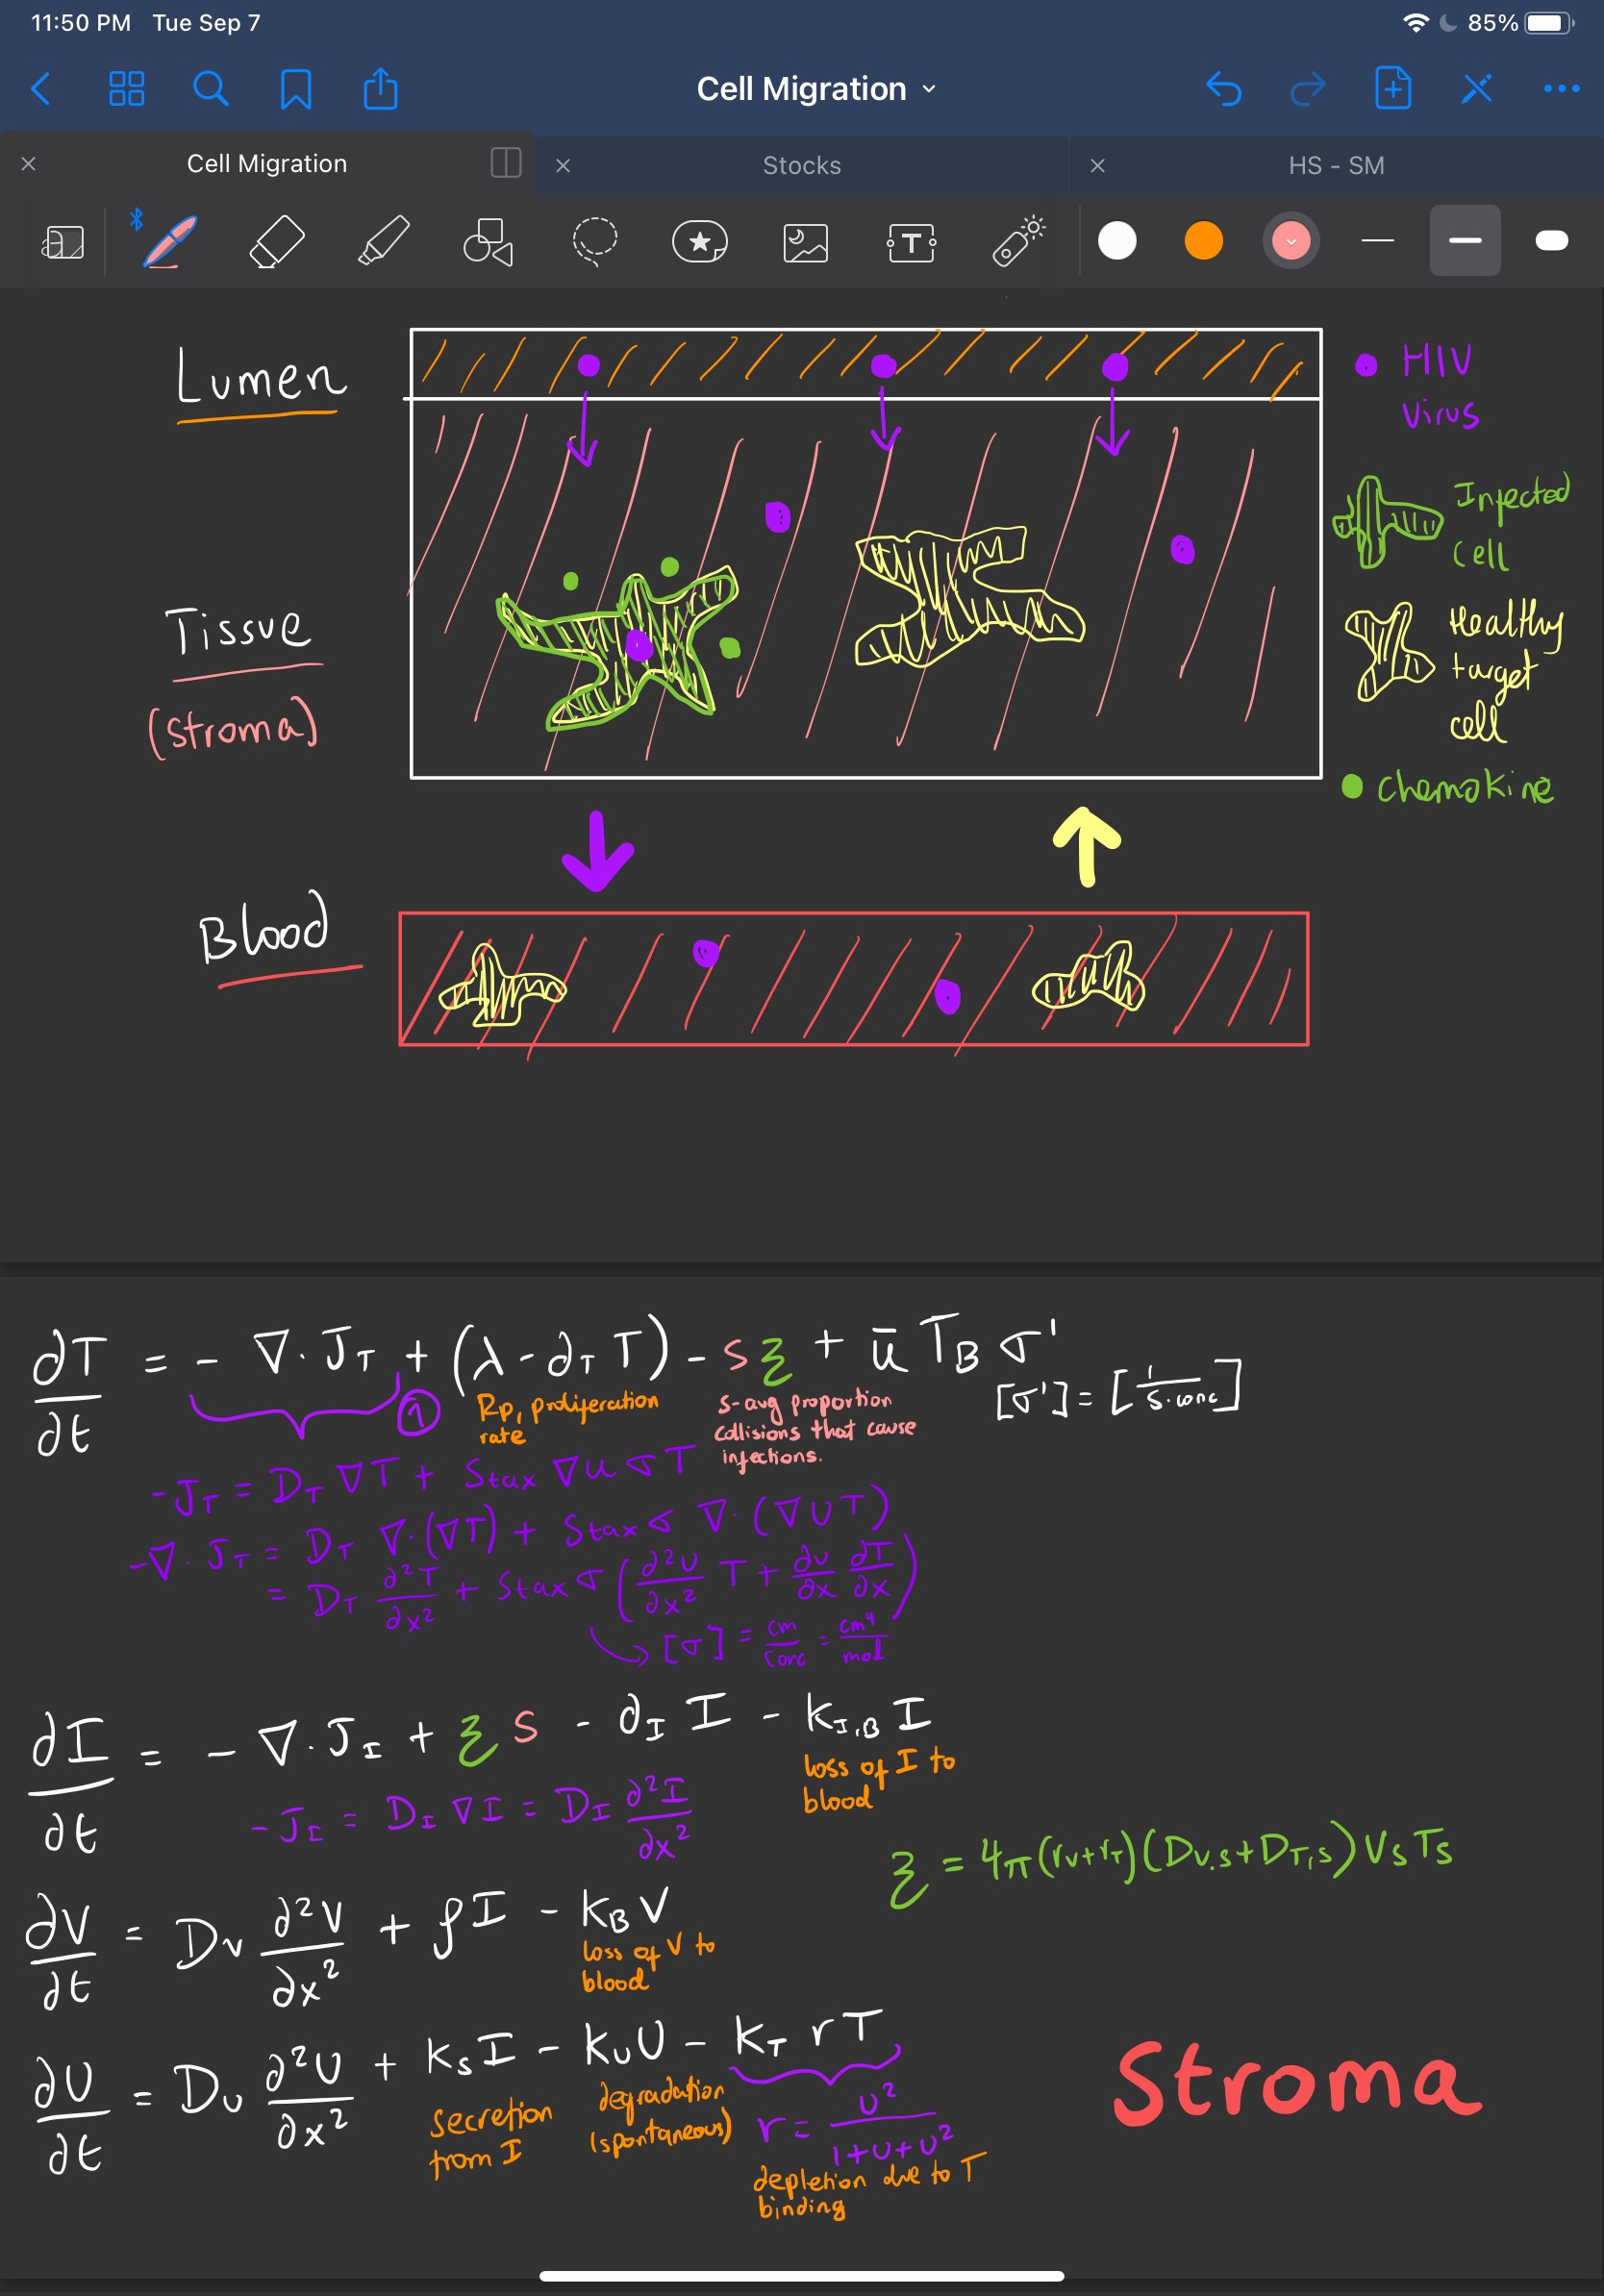 11:50 PM Tue Sep 7
85%
Cell Migration
Cell Migration
Stocks
HS - SM
Lumen
HIV
Virus
Infected
Cell
Tissue
(stroma)
Healthy
target
cell
chemokine
Blood
∂T/∂t = - ∇·J_T + (λ - ∂_T T) - s ξ + ū T_B σ'
[σ'] = [1/s·conc]
①
Rp, proliferation
rate
s-avg proportion
collisions that cause
infections.
-J_T = D_T ∇T + Stax ∇u σ T
-∇·J_T = D_T ∇·(∇T) + Stax σ ∇·(∇U T)
= D_T ∂²T/∂x² + Stax σ (∂²U/∂x² T + ∂U/∂x ∂T/∂x)
[σ] = cm/conc = cm⁴/mol
∂I/∂t = - ∇·J_I + ξ s - ∂_I I - k_I,B I
loss of I to
blood
-J_I = D_I ∇I = D_I ∂²I/∂x²
ξ = 4π(r_V+r_T)(D_V,S+D_T,S) V_S T_S
∂V/∂t = D_V ∂²V/∂x² + ρI - k_B V
loss of V to
blood
∂U/∂t = D_U ∂²U/∂x² + k_S I - k_U U - k_T r T
secretion
from I
degradation
(spontaneous)
r = U²/1+U+U²
depletion due to T
binding
Stroma